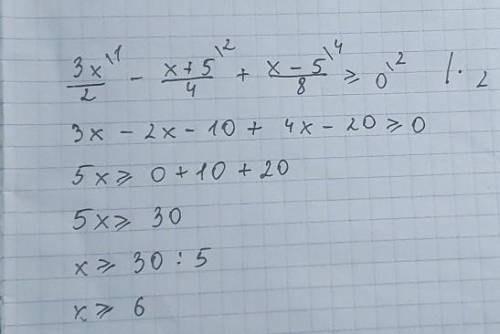 3x\1/2 - x+5\2/4 + x-5\4/8 ⩾ 0\2 |· 2
3x - 2x - 10 + 4x - 20 ⩾ 0
5x ⩾ 0 + 10 + 20
5x ⩾ 30
x ⩾ 30 : 5
x ⩾ 6